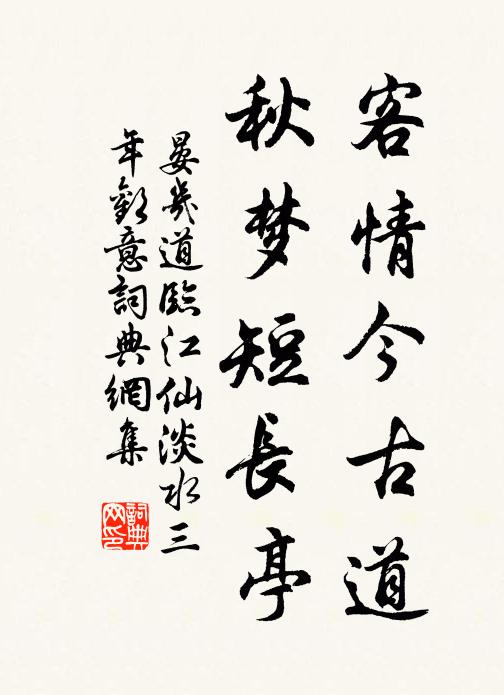 客情今古道
秋梦短長亭
晏幾道臨江仙淡水三
年歡意詞典網集
詞典
网印